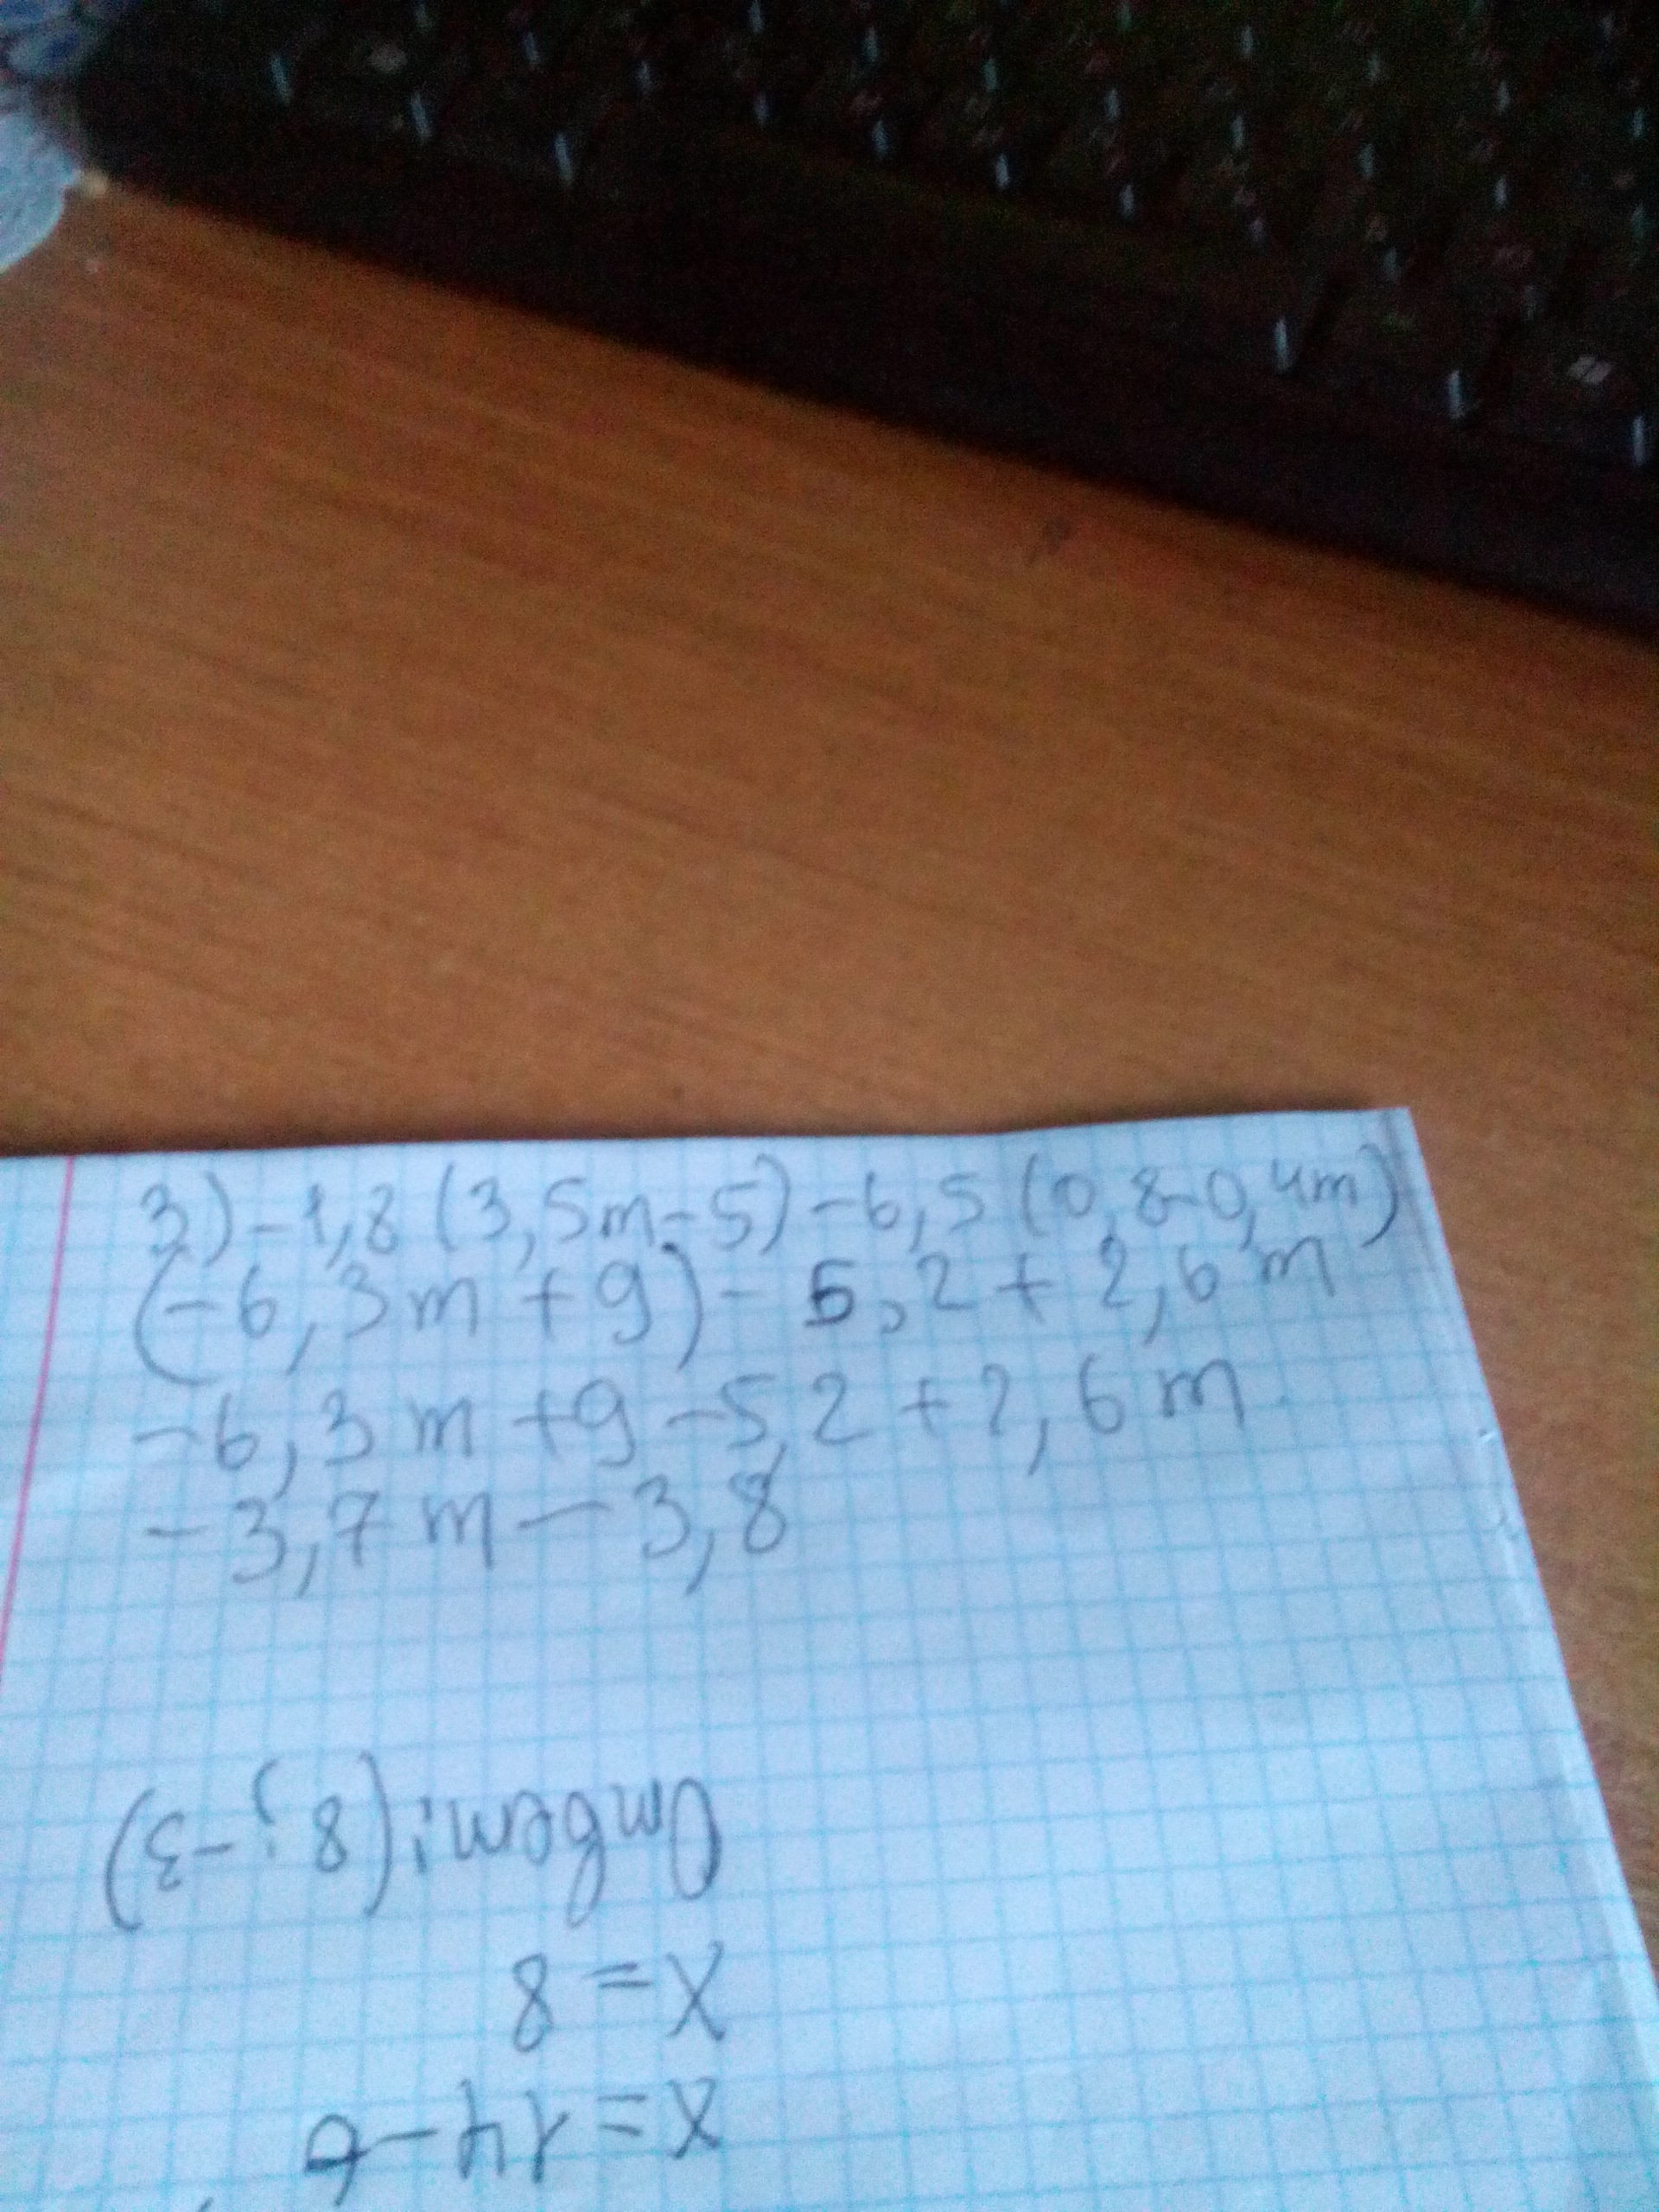 3) -1,8 (3,5m-5) -6,5 (0,8-0,4m)
(-6,3m+9) - 5,2 + 2,6m
-6,3m +9 -5,2 +2,6m
-3,7m - 3,8
x=14-6
x=8
Ответ: (8; -3)